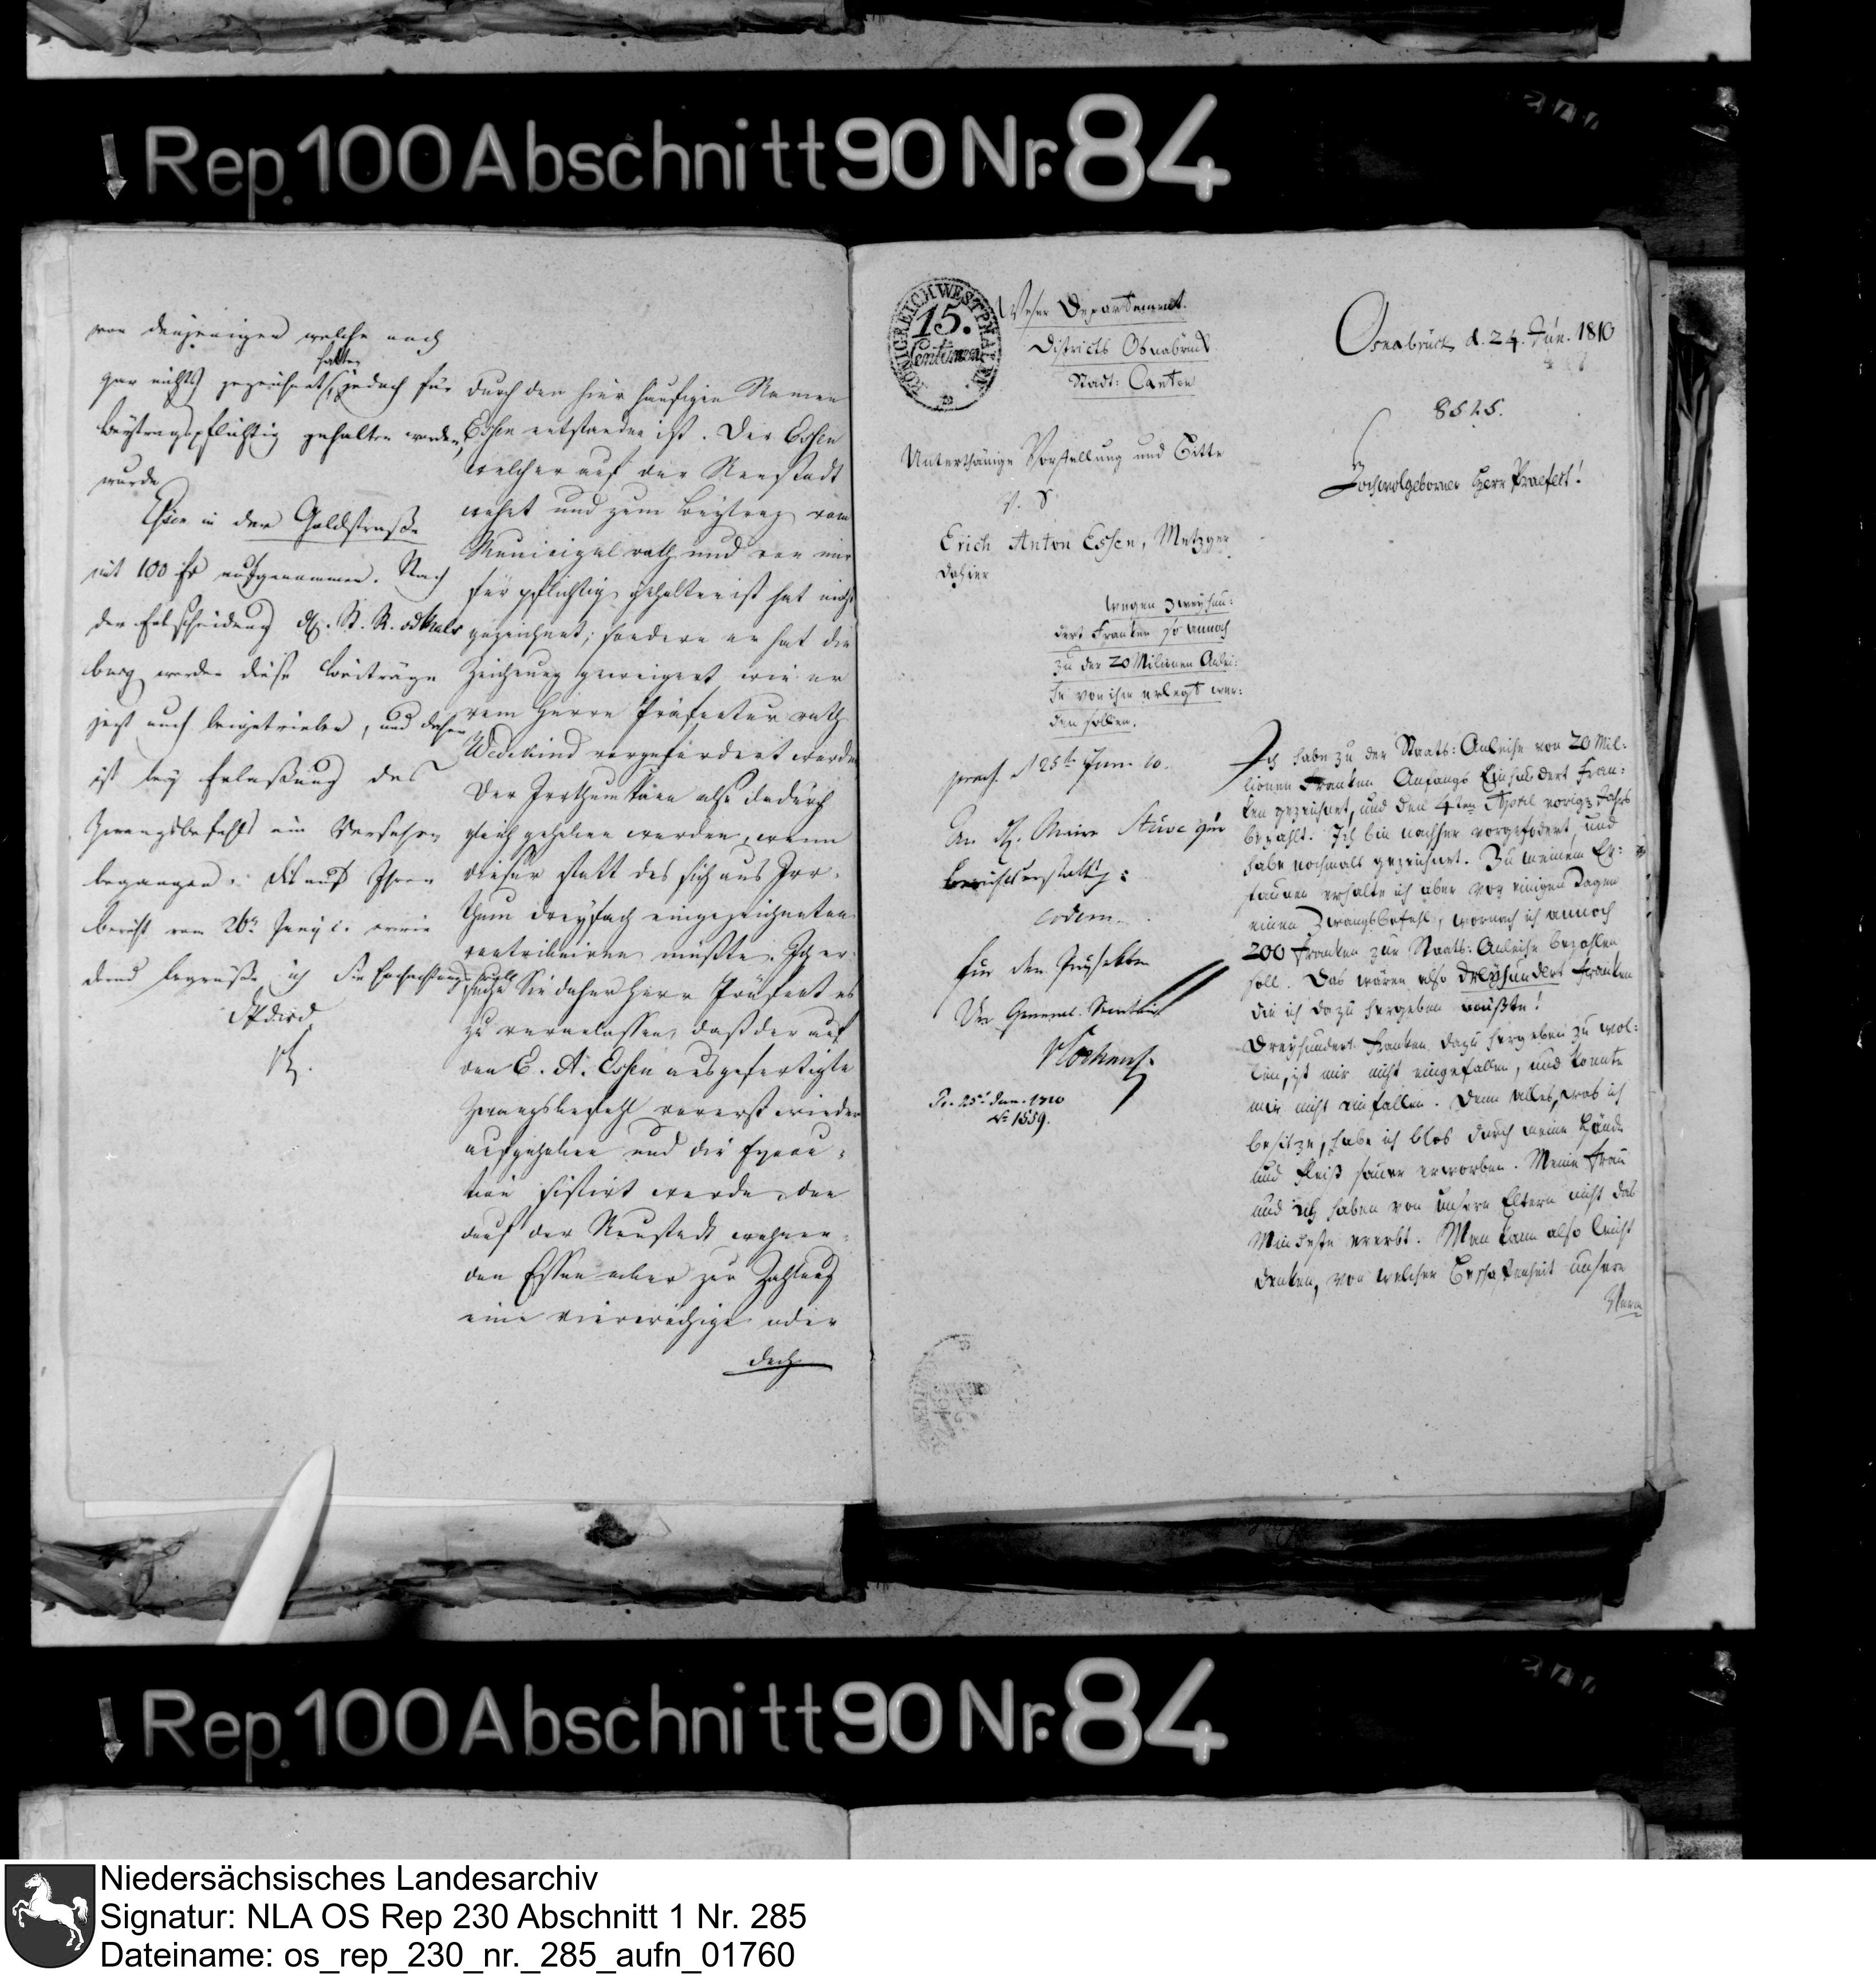 Rep. 100 Abschnitt 90 Nr. 84
von denjenigen welche noch
gar nichts gezeichnet hatten, jedoch für
beytragspflichtig gehalten worden,
wurde
Essen in der Goldstraße
mit 100 fr aufgenommen. Nach
der Entscheidung
burg werden diese Beiträge
jezt auch beigetrieben, und daher
ist bey Erlaßung des
Zwangsbefehls ein Versehen
begangen.
bericht vom 26n Juny c.
durch den hier häufigen Namen
Essen entstanden ist. Der Essen
welcher auf der Neustadt
wohnt und zum Beytrag vom
Municipalrath und von mir
für pflichtig gehalten ist hat nicht
gezeichnet; sondern er hat die
Zeichnung geweigert wie er
vom Herrn Präfectur rath
Wedekind vorgefordert worden
Der Irrthum kann also dadurch
gleich gehoben werden, wenn
dieser statt des sich aus Irr-
thum dreyfach eingezeichneten
contribuiren müßte. Ich er-
suche Sie daher Herr Präfect es
zu veranlassen, daß der auf
den E. A. Essen ausgefertigte
Zwangsbefehl vorerst wieder
aufgehoben und die Execu-
tion sistirt werde, den
auf der Neustadt wohnen-
den Essen aber zur Zahlung
eine vierwöchige oder
doch
KÖNIGREICH WESTPHALEN
15.
Centimen
Weser Departement.
Districts Osnabrück
Stadt: Canton
Unterthänige Vorstellung und Bitte
v. S
Erich Anton Essen, Metzger
dahier
wegen zweyhun:
dert Franken so annoch
zu der 20 Milionen Anlei:
he von ihm erlegt wer:
den sollen.
praes. d 25t Jun. 10.
An H. Maire Stüve zur
Berichtserstattg:
eodem.
Für den Präfekten
Der General-Secretair
Pr. 25t Jun. 1810
No 1559.
Osnabrück d. 24. Jun. 1810
8525.
Hochwolgeborner Herr Praefect!
Ich habe zu der Staats: Anleihe von 20 Mil:
lionen Franken Anfangs Einhundert Fran:
ken gezeichnet, und den 4ten April vorigs Jahrs
bezahlt. Ich bin nachher vorgefodert, und
habe nochmals gezeichnet. Zu meinem Er:
staunen erhalte ich aber vor einigen Tagen
einen Zwangsbefehl, wornach ich annoch
200 Franken zur Staats: Anleihe bezahlen
soll. Das wären also dreyhundert Franken
die ich dazu hergeben müßte!
Dreyhundert Franken dazu hergeben zu wol:
len, ist mir nicht eingefallen, und konnte
mir nicht einfallen. Denn alles, was ich
besitze, habe ich blos durch meine Hände
und Fleiß sauer erworben. Meine Frau
und ich haben von unsern Eltern nicht das
Mindeste ererbt. Man kann also leicht
denken, von welcher Beschafenheit unsere
Rep. 100 Abschnitt 90 Nr. 84
Niedersächsisches Landesarchiv
Signatur: NLA OS Rep 230 Abschnitt 1 Nr. 285
Dateiname: os_rep_230_nr._285_aufn_01760